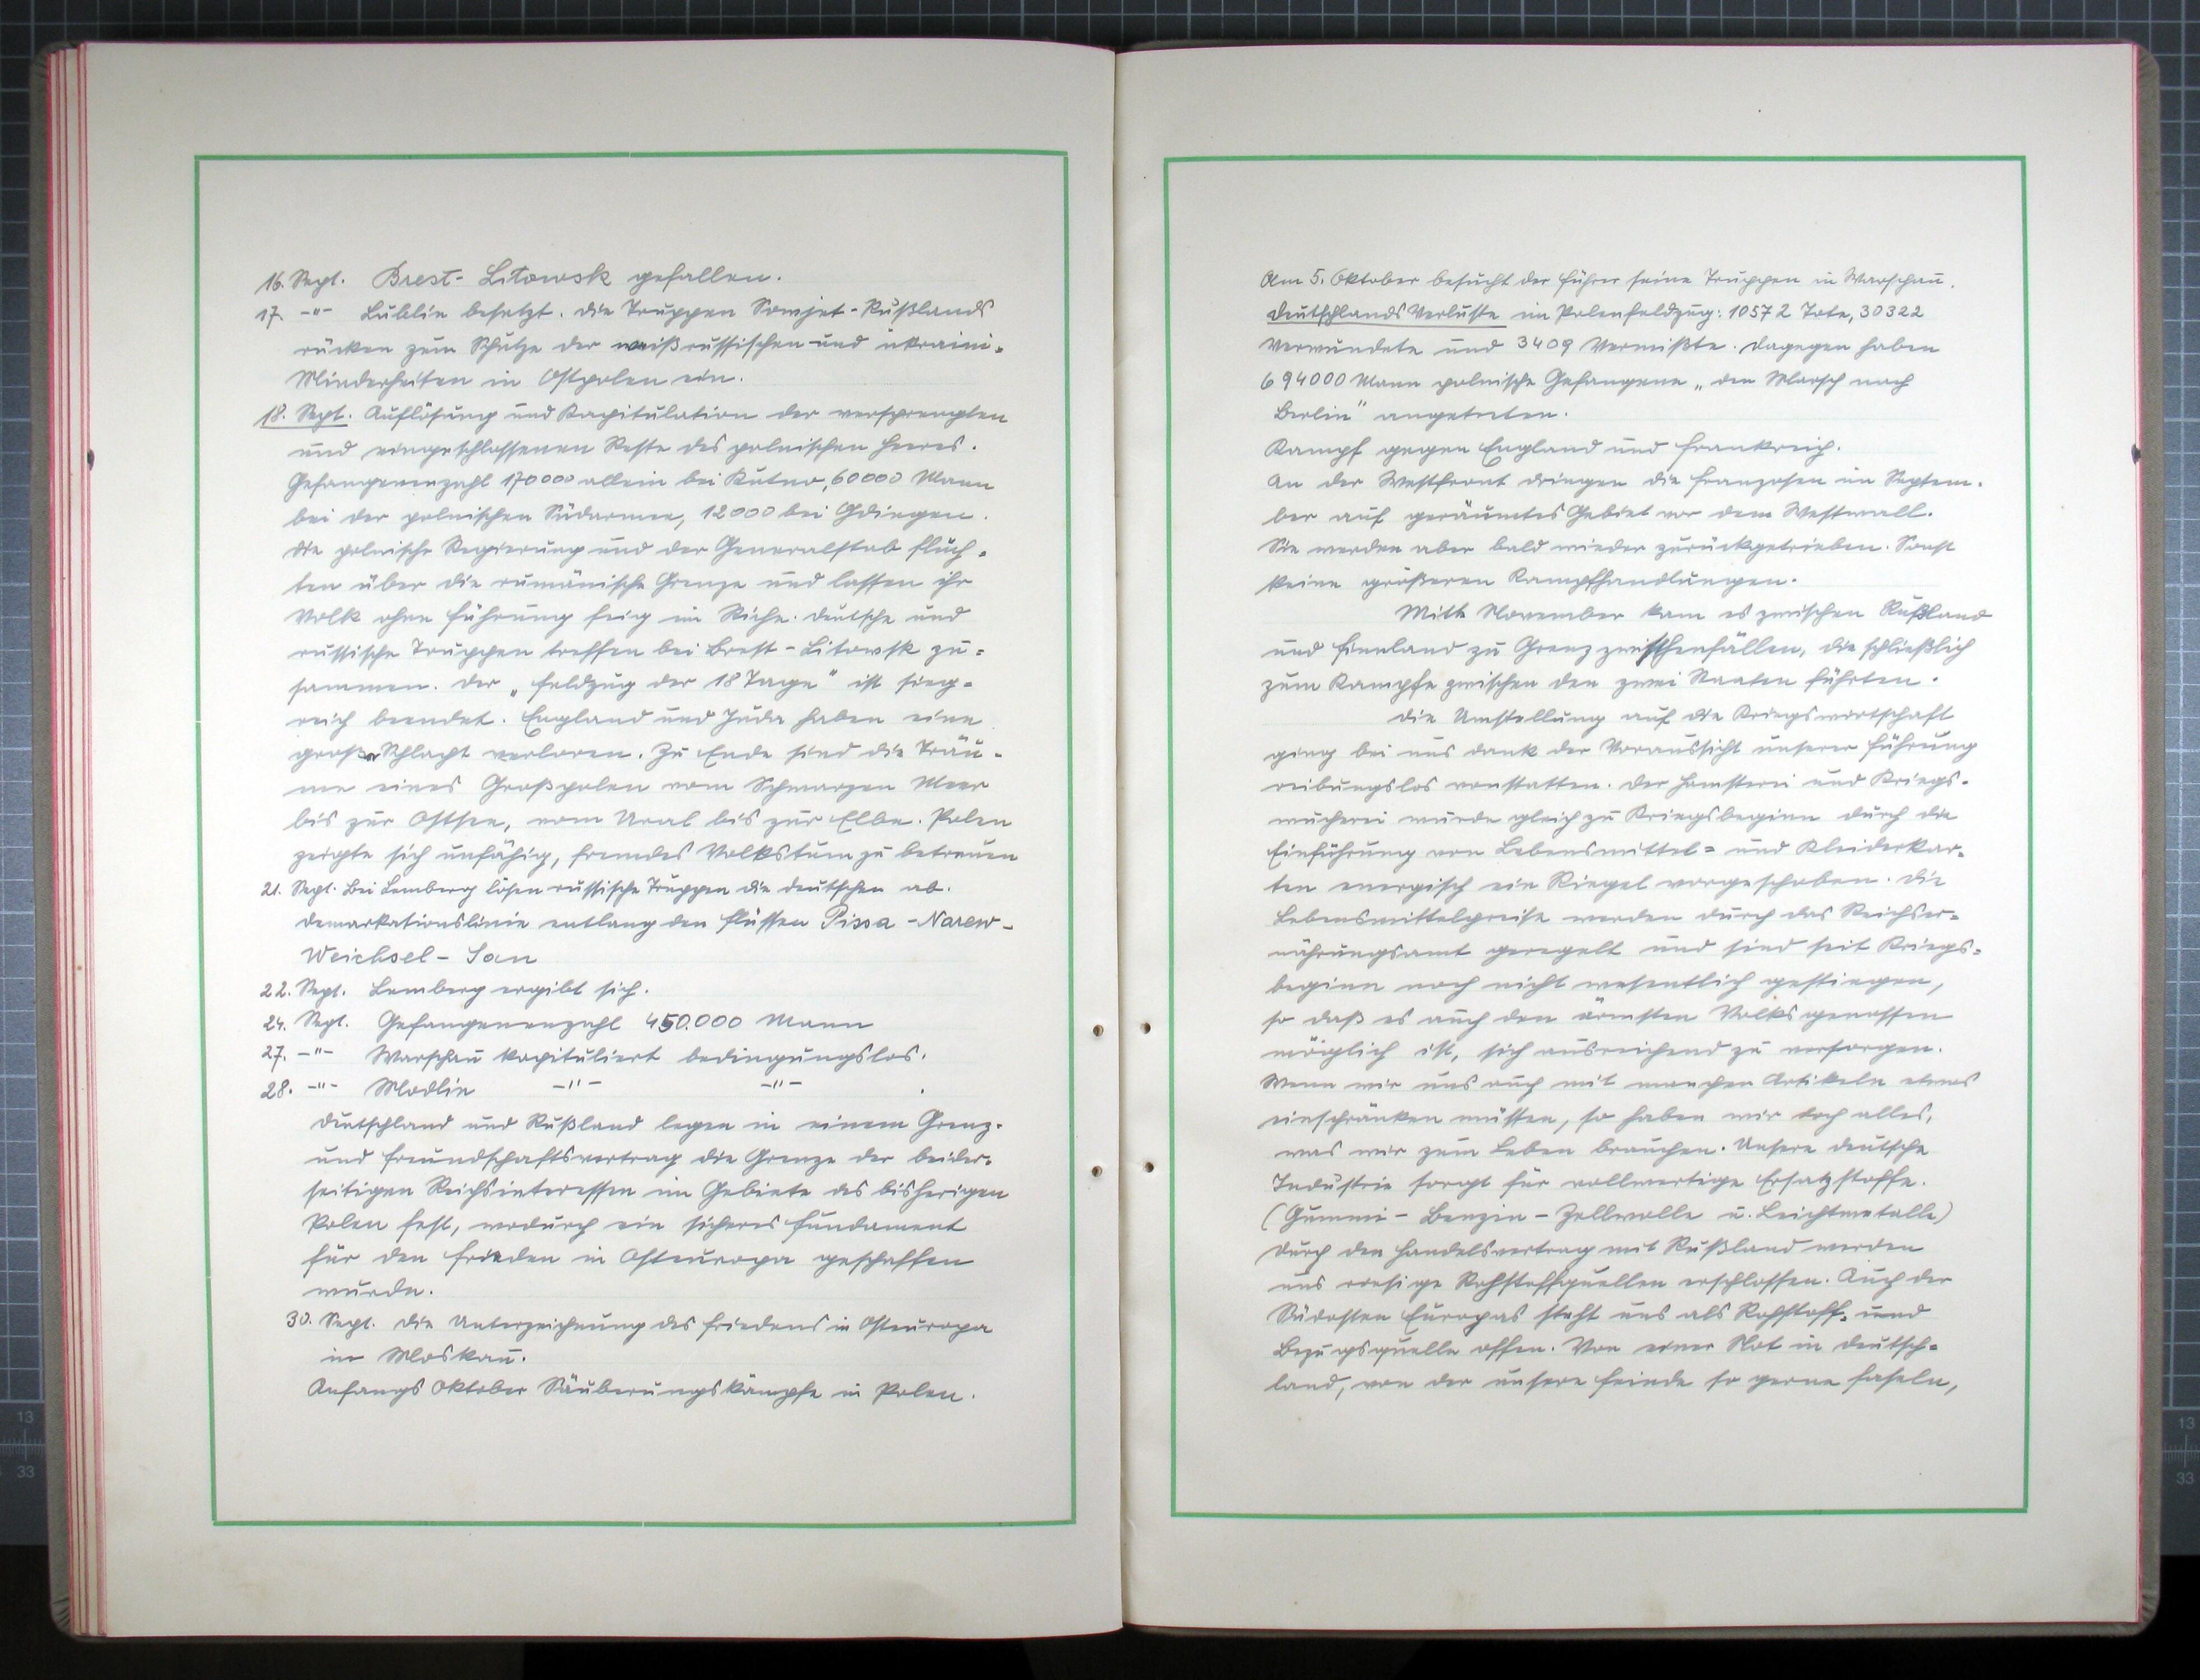 16. Sept. Brest-Litowsk gefallen.
17. -"- Lublin besetzt. Die Truppen Sowjet-Rußlands
rücken zum Schutze der weißrussischen und ukraini-
Minderheiten in Ostpolen ein.
18. Sept. Auflösung und Kapitulation der versprengten
und eingeschlossenen Reste des polnischen Heeres.
Gefangenenzahl 170000 allein bei Kutno, 60000 Mann
bei der polnischen Südarmee, 12000 bei Gdingen.
Die polnische Regierung und der Generalstab flüch-
ten über die rumänische Grenze und lassen ihr
Volk ohne Führung feig im Stiche. Deutsche und
russische Truppen treffen bei Brest-Litowsk zu-
sammen. Der „Feldzug der 18 Tage" ist sieg-
reich beendet. England und Juda haben eine
große Schlacht verloren. Zu Ende sind die Träu-
me eines Großpolen vom Schwarzen Meer
bis zur Ostsee, vom Ural bis zur Elbe. Polen
zeigte sich unfähig, fremdes Volkstum zu betreuen
21. Sept. Bei Lemberg lösen russische Truppen die deutschen ab.
Demarkationslinie entlang den Flüssen Pissa-Narew-
Weichsel-San
22. Sept. Lemberg ergibt sich.
24. Sept. Gefangenenzahl 450.000 Mann
27. -"- Warschau kapituliert bedingungslos.
28. -"- Modlin -"- -"- .
Deutschland und Rußland legen in einem Grenz-
und Freundschaftsvertrag die Grenze der beider-
seitigen Reichsinteressen im Gebiete des bisherigen
Polen fest, wodurch ein sicheres Fundament
für den Frieden in Osteuropa geschaffen
wurde.
30. Sept. Die Unterzeichnung des Friedens in Osteuropa
in Moskau.
Anfangs Oktober Säuberungskämpfe in Polen.
Am 5. Oktober besucht der Führer seine Truppen in Warschau.
Deutschlands Verluste im Polenfeldzug: 10572 Tote, 30322
Verwundete und 3409 Vermißte. Dagegen haben
694000 Mann polnische Gefangene „den Marsch nach
Berlin" angetreten.
Kampf gegen England und Frankreich.
An der Westfront dringen die Franzosen im Septem-
ber auf geräumtes Gebiet vor dem Westwall.
Sie werden aber bald wieder zurückgetrieben. Sonst
keine größeren Kampfhandlungen.
Mitte November kam es zwischen Rußland
und Finnland zu Grenzzwischenfällen, die schließlich
zum Kampfe zwischen den zwei Staaten führten.
Die Umstellung auf die Kriegswirtschaft
ging bei uns dank der Voraussicht unserer Führung
reibungslos vonstatten. Der Hamsterei und Kriegs-
wucherei wurde gleich zu Kriegsbeginn durch die
Einführung von Lebensmittel- und Kleiderkar-
ten energisch ein Riegel vorgeschoben. Die
Lebensmittelpreise werden durch das Reichser-
nährungsamt geregelt und sind seit Kriegs-
beginn noch nicht wesentlich gestiegen,
so daß es auch den ärmsten Volksgenossen
möglich ist, sich ausreichend zu versorgen.
Wenn wir uns auch mit manchen Artikeln etwas
einschränken müssen, so haben wir doch alles,
was wir zum Leben brauchen. Unsere deutsche
Industrie sorgt für vollwertige Ersatzstoffe.
(Gummi-Benzin-Zellwolle u. Leichtmetalle)
Durch den Handelsvertrag mit Rußland werden
uns riesige Rohstoffquellen erschlossen. Auch der
Südosten Europas steht uns als Rohstoff- und
Bezugsquelle offen. Von einer Not in Deutsch-
land, von der unsere Feinde so gerne faseln,
13
33
13
33